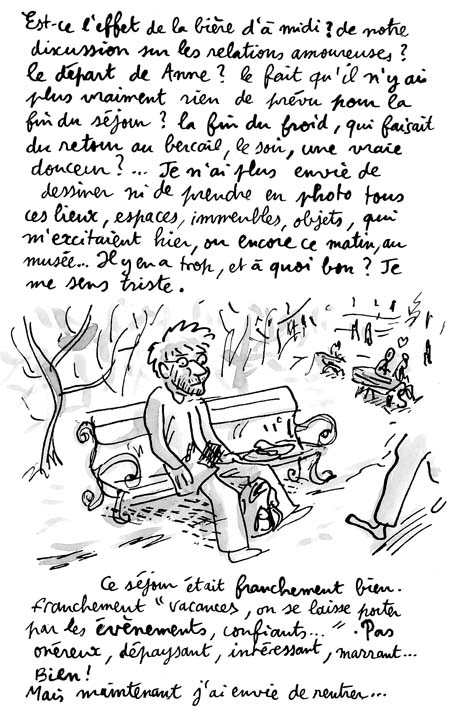 Est-ce l'effet de la bière d'à midi ? de notre
discussion sur les relations amoureuses ?
le départ de Anne ? le fait qu'il n'y ai
plus vraiment rien de prévu pour la
fin du séjour ? la fin du froid, qui faisait
du retour au bercail, le soir, une vraie
douceur ?... Je n'ai plus envie de
dessiner ni de prendre en photo tous
ces lieux, espaces, immeubles, objets, qui
m'excitaient hier, ou encore ce matin, au
musée... Il y en a trop, et à quoi bon ? Je
me sens triste.
Ce séjour était franchement bien.
franchement "vacances, on se laisse porter
par les évènements, confiants...". Pas
onéreux, dépaysant, intéressant, marrant...
Bien !
Mais maintenant j'ai envie de rentrer...